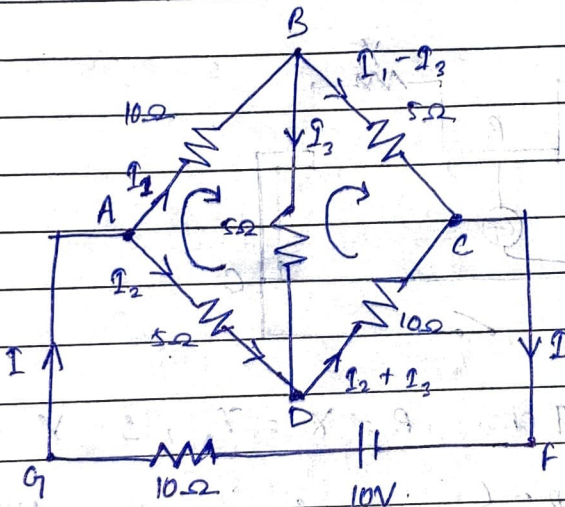 B
I₁-I₃
10Ω
5Ω
I₃
I₁
A
5Ω
C
I₂
5Ω
10Ω
I
I
I₂ + I₃
D
G
10Ω
10V.
F